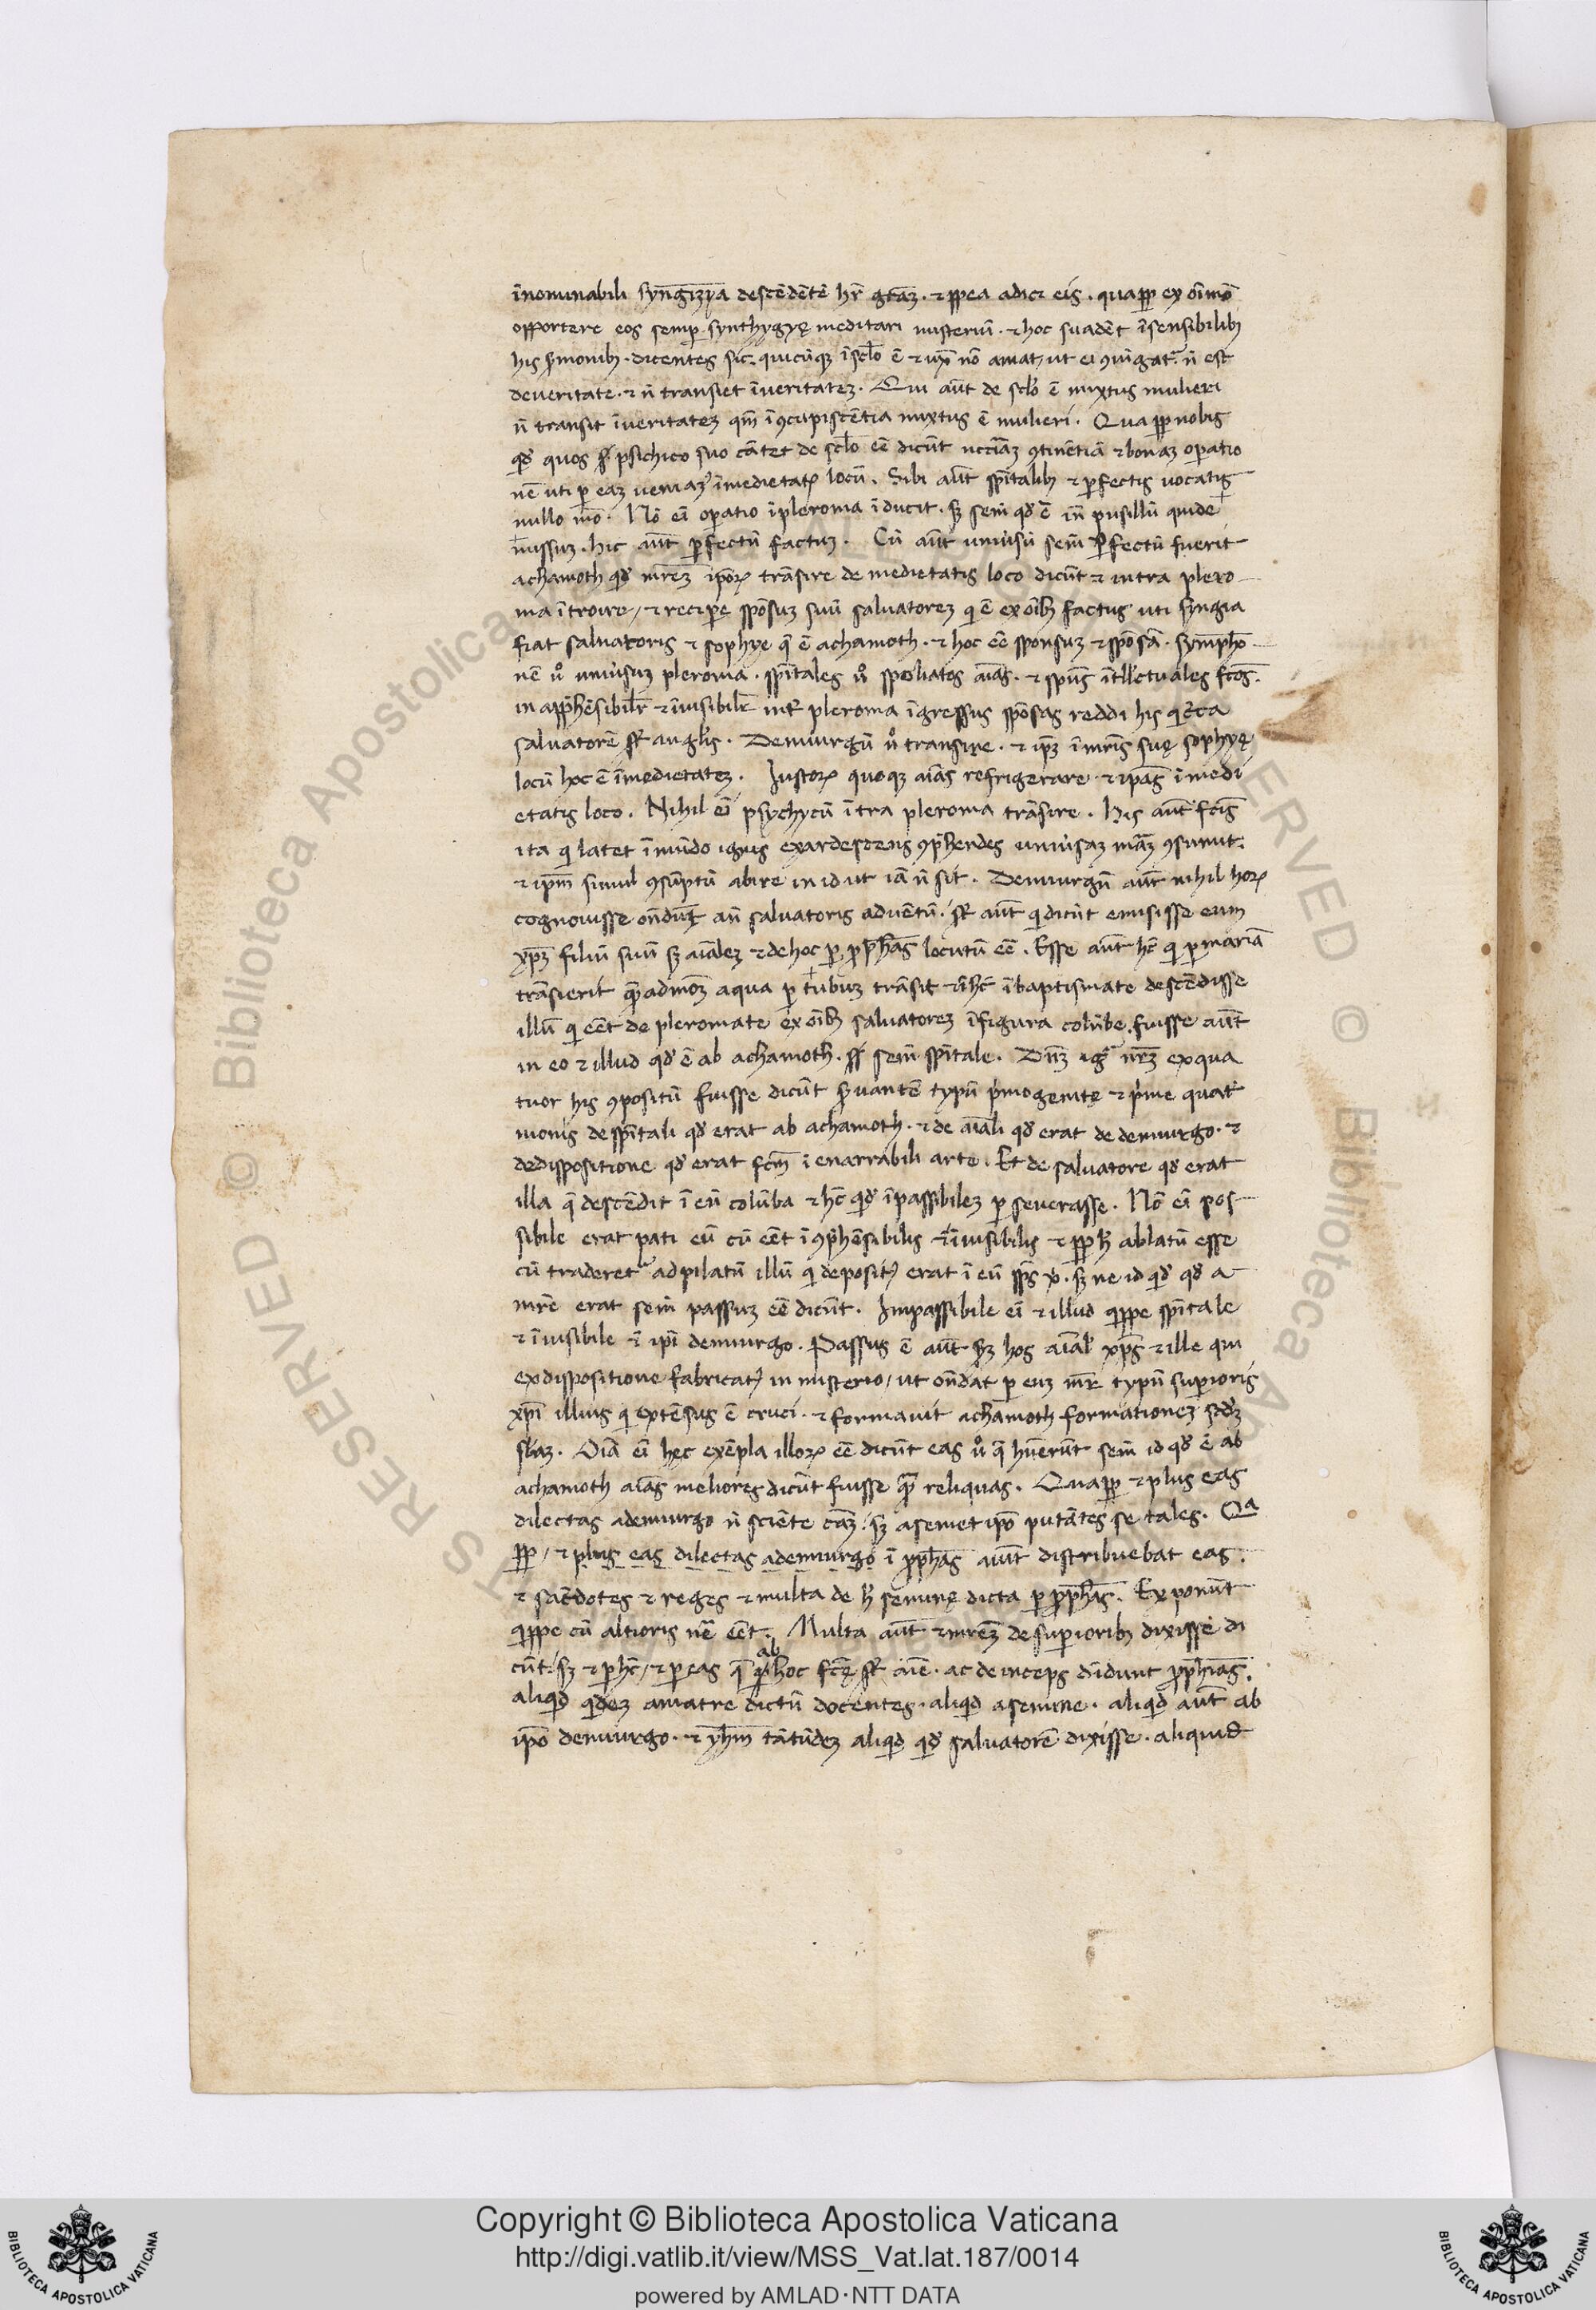 īnominabili syngizyā descēdētē hr̄e grāꝫ · ⁊ ꝓpea adici eis · quapp̱ ex oī mō
opportere eos semꝑ synthygyę meditari misteriū · ⁊ hoc suadēt īsensibilibꝫ
his ẜmonibꝫ · dicentes sic · quicūqꝫ ī sc̄lo ē ⁊ ux̄ nō amat / ut ei ꝯiūgatᷣ · n̄ est
de veritate · ⁊ n̄ transiet ī veritateꝫ · Qui aūt de sc̄lo ē mixtus mulieri
n̄ transit ī veritateꝫ qm̄ ī ꝯcupiscētia mixtus ē mulieri · Quapp̱ nobis
qd̓ quos psichico suo
nē uti ꝑ eaꝫ ueniaꝫ ī medietatꝭ locū · Sibi aūt spīitalibꝫ ⁊ ꝑfectis uocatis
nullo mō · Nō eī oꝑatio ī pleroma īducit · sꝫ sem̄ qd̓ ē īn pusillū quide
missuꝫ · hic aūt ꝑfectū factuꝫ · Cū aūt uniūsū sem̄ ꝑfectū fuerit
achamoth qd̓ mr̄eꝫ ip̄oꝝ trāsire de medietatis loco dicūt ⁊ intra plero-
ma ītroire / ⁊ reciꝑe spōsuꝫ suū saluatoreꝫ qͥ ē ex oībꝫ factus uti syngia
fiat saluatoris ⁊ sophye q̄ ē achamoth · ⁊ hoc eē sponsuꝫ ⁊ spōsā · symphō-
nē uͦ uniūsuꝫ pleroma · spīitales uͦ spoliatos aīas · ⁊ spūs ītll'ctuales fc̄os ·
in apphēsibilr̄ ⁊ īuisibilr̄ intͣ pleroma īgressus spōsas reddi his qͥ cͥca
saluatorē st̄ angl'is · Demiurgū uͦ transire · ⁊ ip̄ꝫ ī mr̄is suę sophyę
locū hoc ē ī medietateꝫ · Iustoꝝ quoqꝫ aīas refrigerare · ⁊ ip̄as ī medi
etatis loco · Nihil eī psychycū ītra pleroma trāsire · His aūt fc̄is
ita qͥ latet ī mūdo ignis exardescens ꝯp̄hendes uniūsaꝫ māꝫ ꝯsumit ·
⁊ ip̄m simul ꝯsūptū abire in id ut iā n̄ sit · Demiurgū aūt nihil hoꝝ
cognouisse on̄dūt an̄ saluatoris aduētū · st̄ aūt qͥ dicūt emisisse eum
xp̄ꝫ filiū suū sꝫ aīaleꝫ ⁊ de hoc ꝑ ꝓph̄as locutū eē · Esse aūt hc̄ qͥ ꝑ mariā
trāsierit quē admoꝫ aqua ꝑ tubuꝫ trāsit ⁊ ī hc̄ ī baptismate descēdisse
illū qͥ eēt de pleromate ex oībꝫ saluatoreꝫ ī figura colūbe · fuisse aūt
in eo ⁊ illud qd̓ ē ab achamoth · sem̄ spīitale · Dn̄ꝫ igͣ nr̄ꝫ ex qua
tuor his ꝯpositū fuisse dicūt ẜuantē typū pͥmogenitę ⁊ pͥme quatͣ
nionis de spīitali qd̓ erat ab achamoth · ⁊ de aīali qd̓ erat de demiurgo · ⁊
de dispositione qd̓ erat fc̄m ī enarrabili arte · Et de saluatore qd̓ erat
illa q̄ descēdit ī eū colūba ⁊ hc̄ qͥd̓ īpassibileꝫ ꝑseuerasse · Nō eī pos-
sibile erat pati eū cū eēt ī ꝯp̄hēsibilis ⁊ īuisibilis ⁊ ꝓp̱ h̄ ablatū esse
cū traderetᷣ ad pilatū illū qͥ depositꝰ erat ī eū sps̄ x̄ · sꝫ ne id qͥd̓ qd̓ a
mr̄e erat sem̄ passuꝫ eē dicūt · Impassibile eī ⁊ illud qͥppe spīitale
⁊ īuisibile ⁊ ip̄i demiurgo · Passus ē aūt hos aīal' xp̄s ⁊ ille qui
ex dispositione fabricatꝰ in misterio / ut on̄dat ꝑ euꝫ mr̄ typū suꝑioris
xp̄i illius qͥ extēsus ē cruci · ⁊ formauit achamoth formationeꝫ
Oīa eī hęc exēpla illoꝝ eē dicūt eas uͦ q̄ h̄uerūt sem̄ id qd̓ ē ab
achamoth aīas meliores dicūt fuisse qͣm reliquas · Quapp̱ ⁊ plus eas
dilectas a demiurgo n̄ sciēte cāꝫ · sꝫ a semet ip̄o putātes se tales · Qͣ
pp̱ / ⁊ plus eas dilectas a demiurgo ī ꝓph̄as aiūt distribuebat eas ·
⁊ sac̄dotes ⁊ reges ⁊ multa de h̄ seminę dicta ꝑ ꝓph̄as · Exponūt
qͥppe cū altioris nē eēt · Multa aūt ⁊ mr̄eꝫ de suꝑioribꝫ dixisse di
cūt / sꝫ ⁊ ꝑ hc̄ / ⁊ ꝑ eas q̄ ab hoc fc̄ę st̄ aīe · ac deinceps diuidunt ꝓph̄ias ·
aliqͥd qͥdeꝫ a matre dictū docentes · aliqͥd a semine · aliqͥd aūt ab
ip̄o demiurgo · ⁊ yh̄m tātūdeꝫ aliqͥd qͥd̓ saluatorē dixisse · aliquid
Copyright © Biblioteca Apostolica Vaticana
http://digi.vatlib.it/view/MSS_Vat.lat.187/0014
powered by AMLAD·NTT DATA